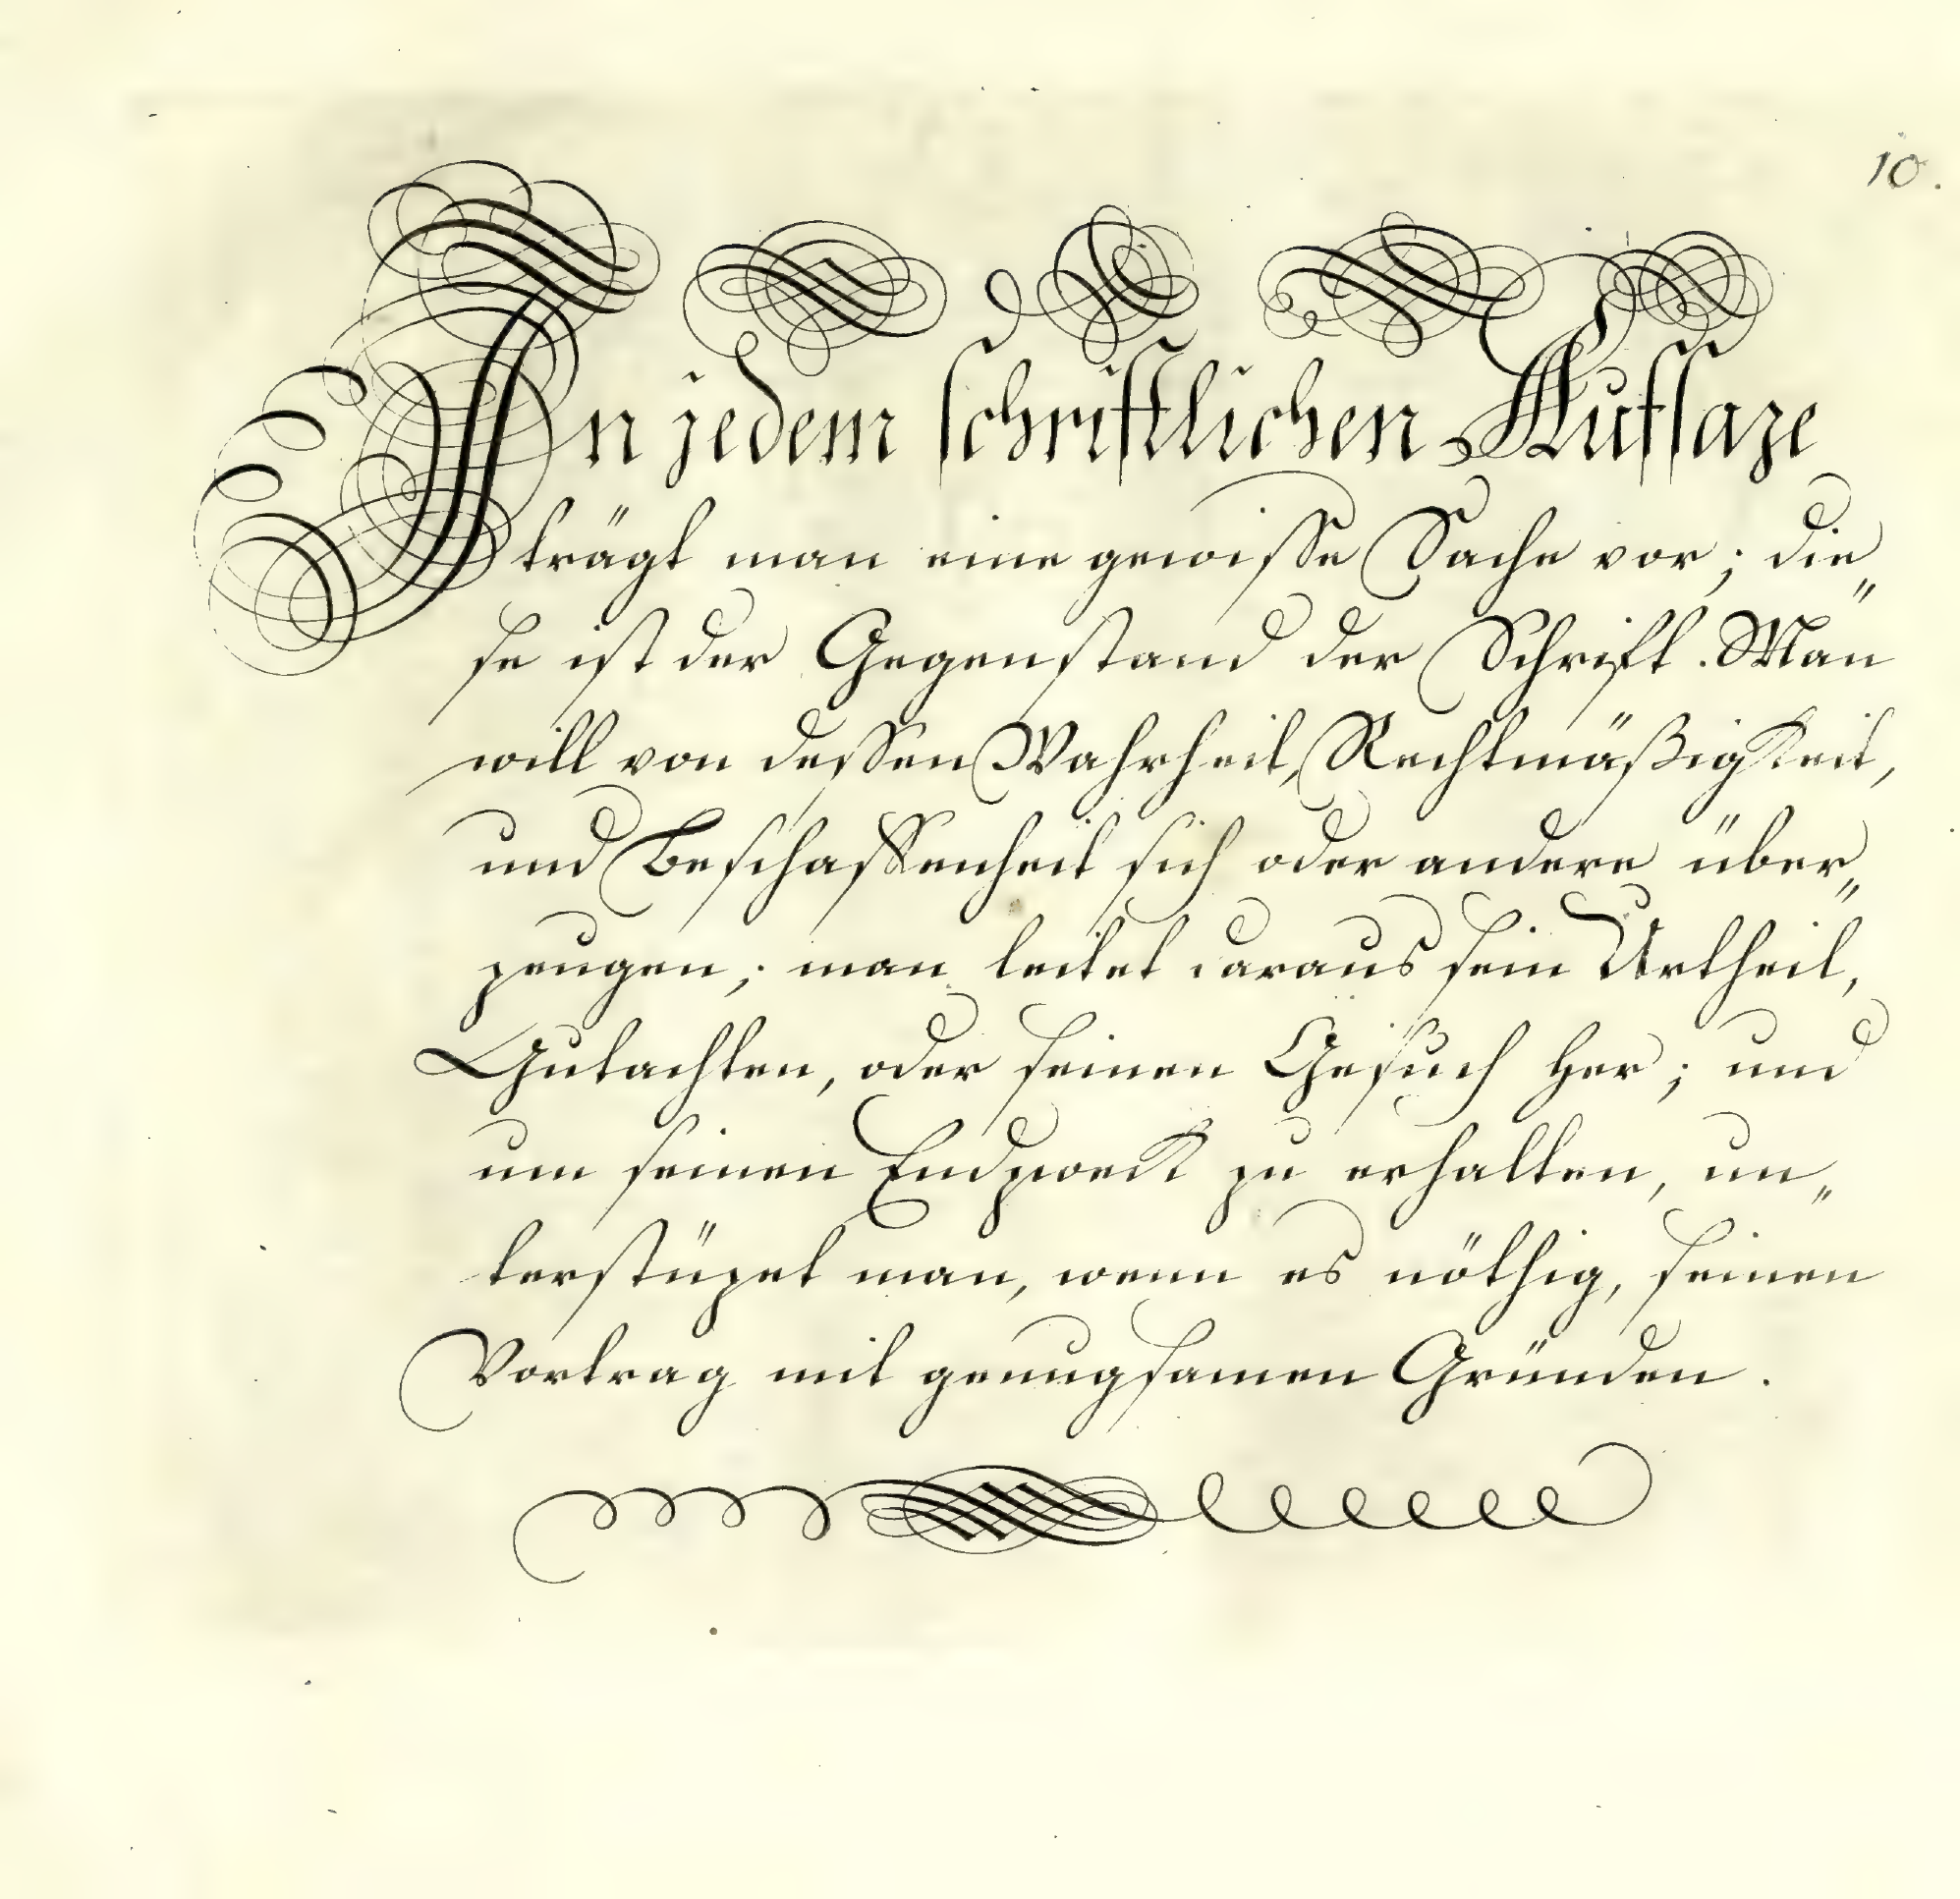 10.
In jedem schriftlichen Aufsaze
trägt man eine gewisse Sache vor; die„
se ist der Gegenstand der Schrift. Man
will von dessen Wahrheit, Rechtmäßigkeit,
und Beschaffenheit sich oder andere über„
zeugen; man leitet daraus sein Urtheil,
Gutachten, oder seinen Gesuch her; und
um seinen Endzweck zu erhalten, un„
terstüzet man, wenn es nöthig, seinen
Vortrag mit genugsamen Gründen.